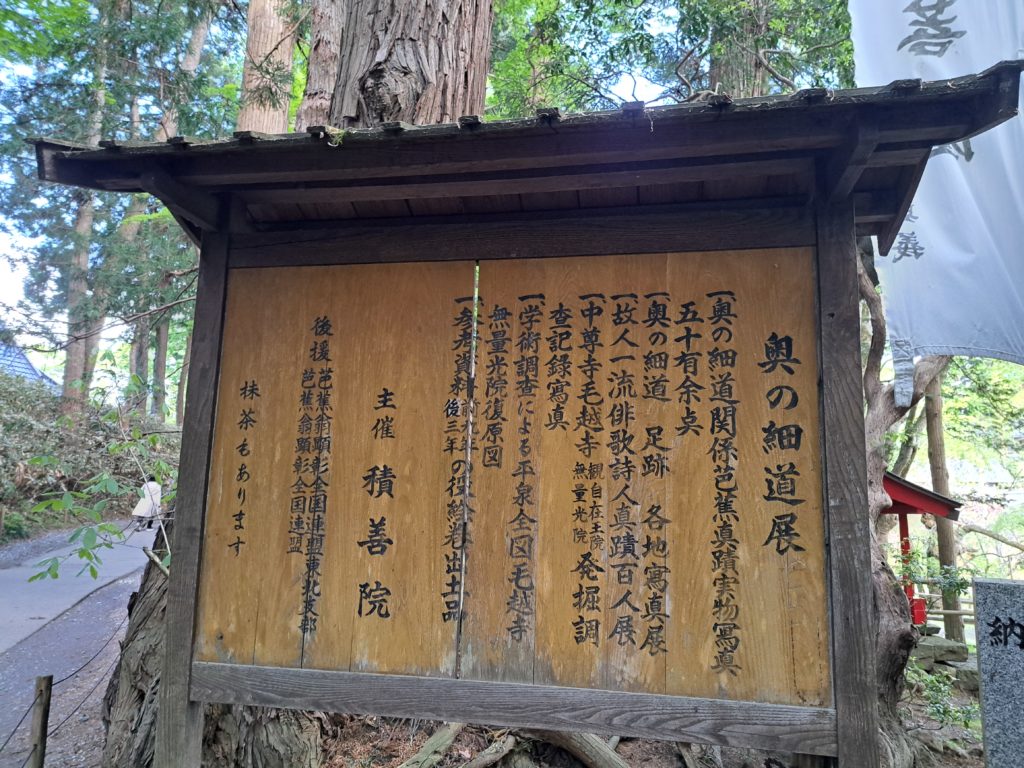 奥の細道展
一、奥の細道関係芭蕉真蹟実物寫真
五十有余点
一、奥の細道 足跡 各地寫真展
一、故人一流俳歌詩人真蹟百人展
一、中尊寺毛越寺 観自在王院 無量光院 発掘調
査記録寫真
一、学術調査による平泉全図毛越寺
無量光院復原図
一、参考資料 前九年 後三年 の役絵巻出土品
主催 積善院
後援 芭蕉翁顕彰全国連盟東北支部
芭蕉翁顕彰全国連盟
抹茶もあります
納
義